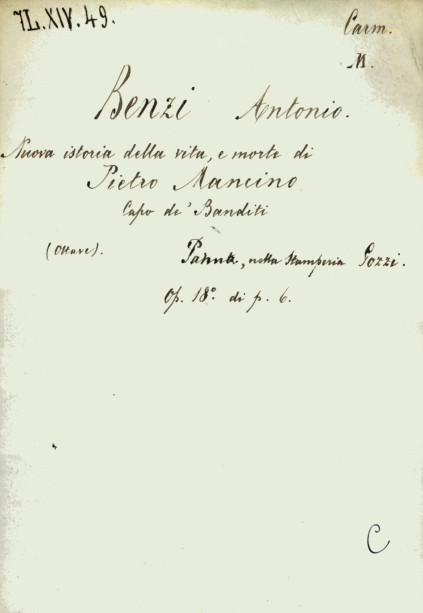 7L.XIV.49.
Carm.
M.
Renzi Antonio.
Nuova istoria della vita, e morte di
Pietro Mancino
Capo de' Banditi
(Ottave).
Parma, nella Stamperia Gozzi.
Op. 18º di p. 6.
C